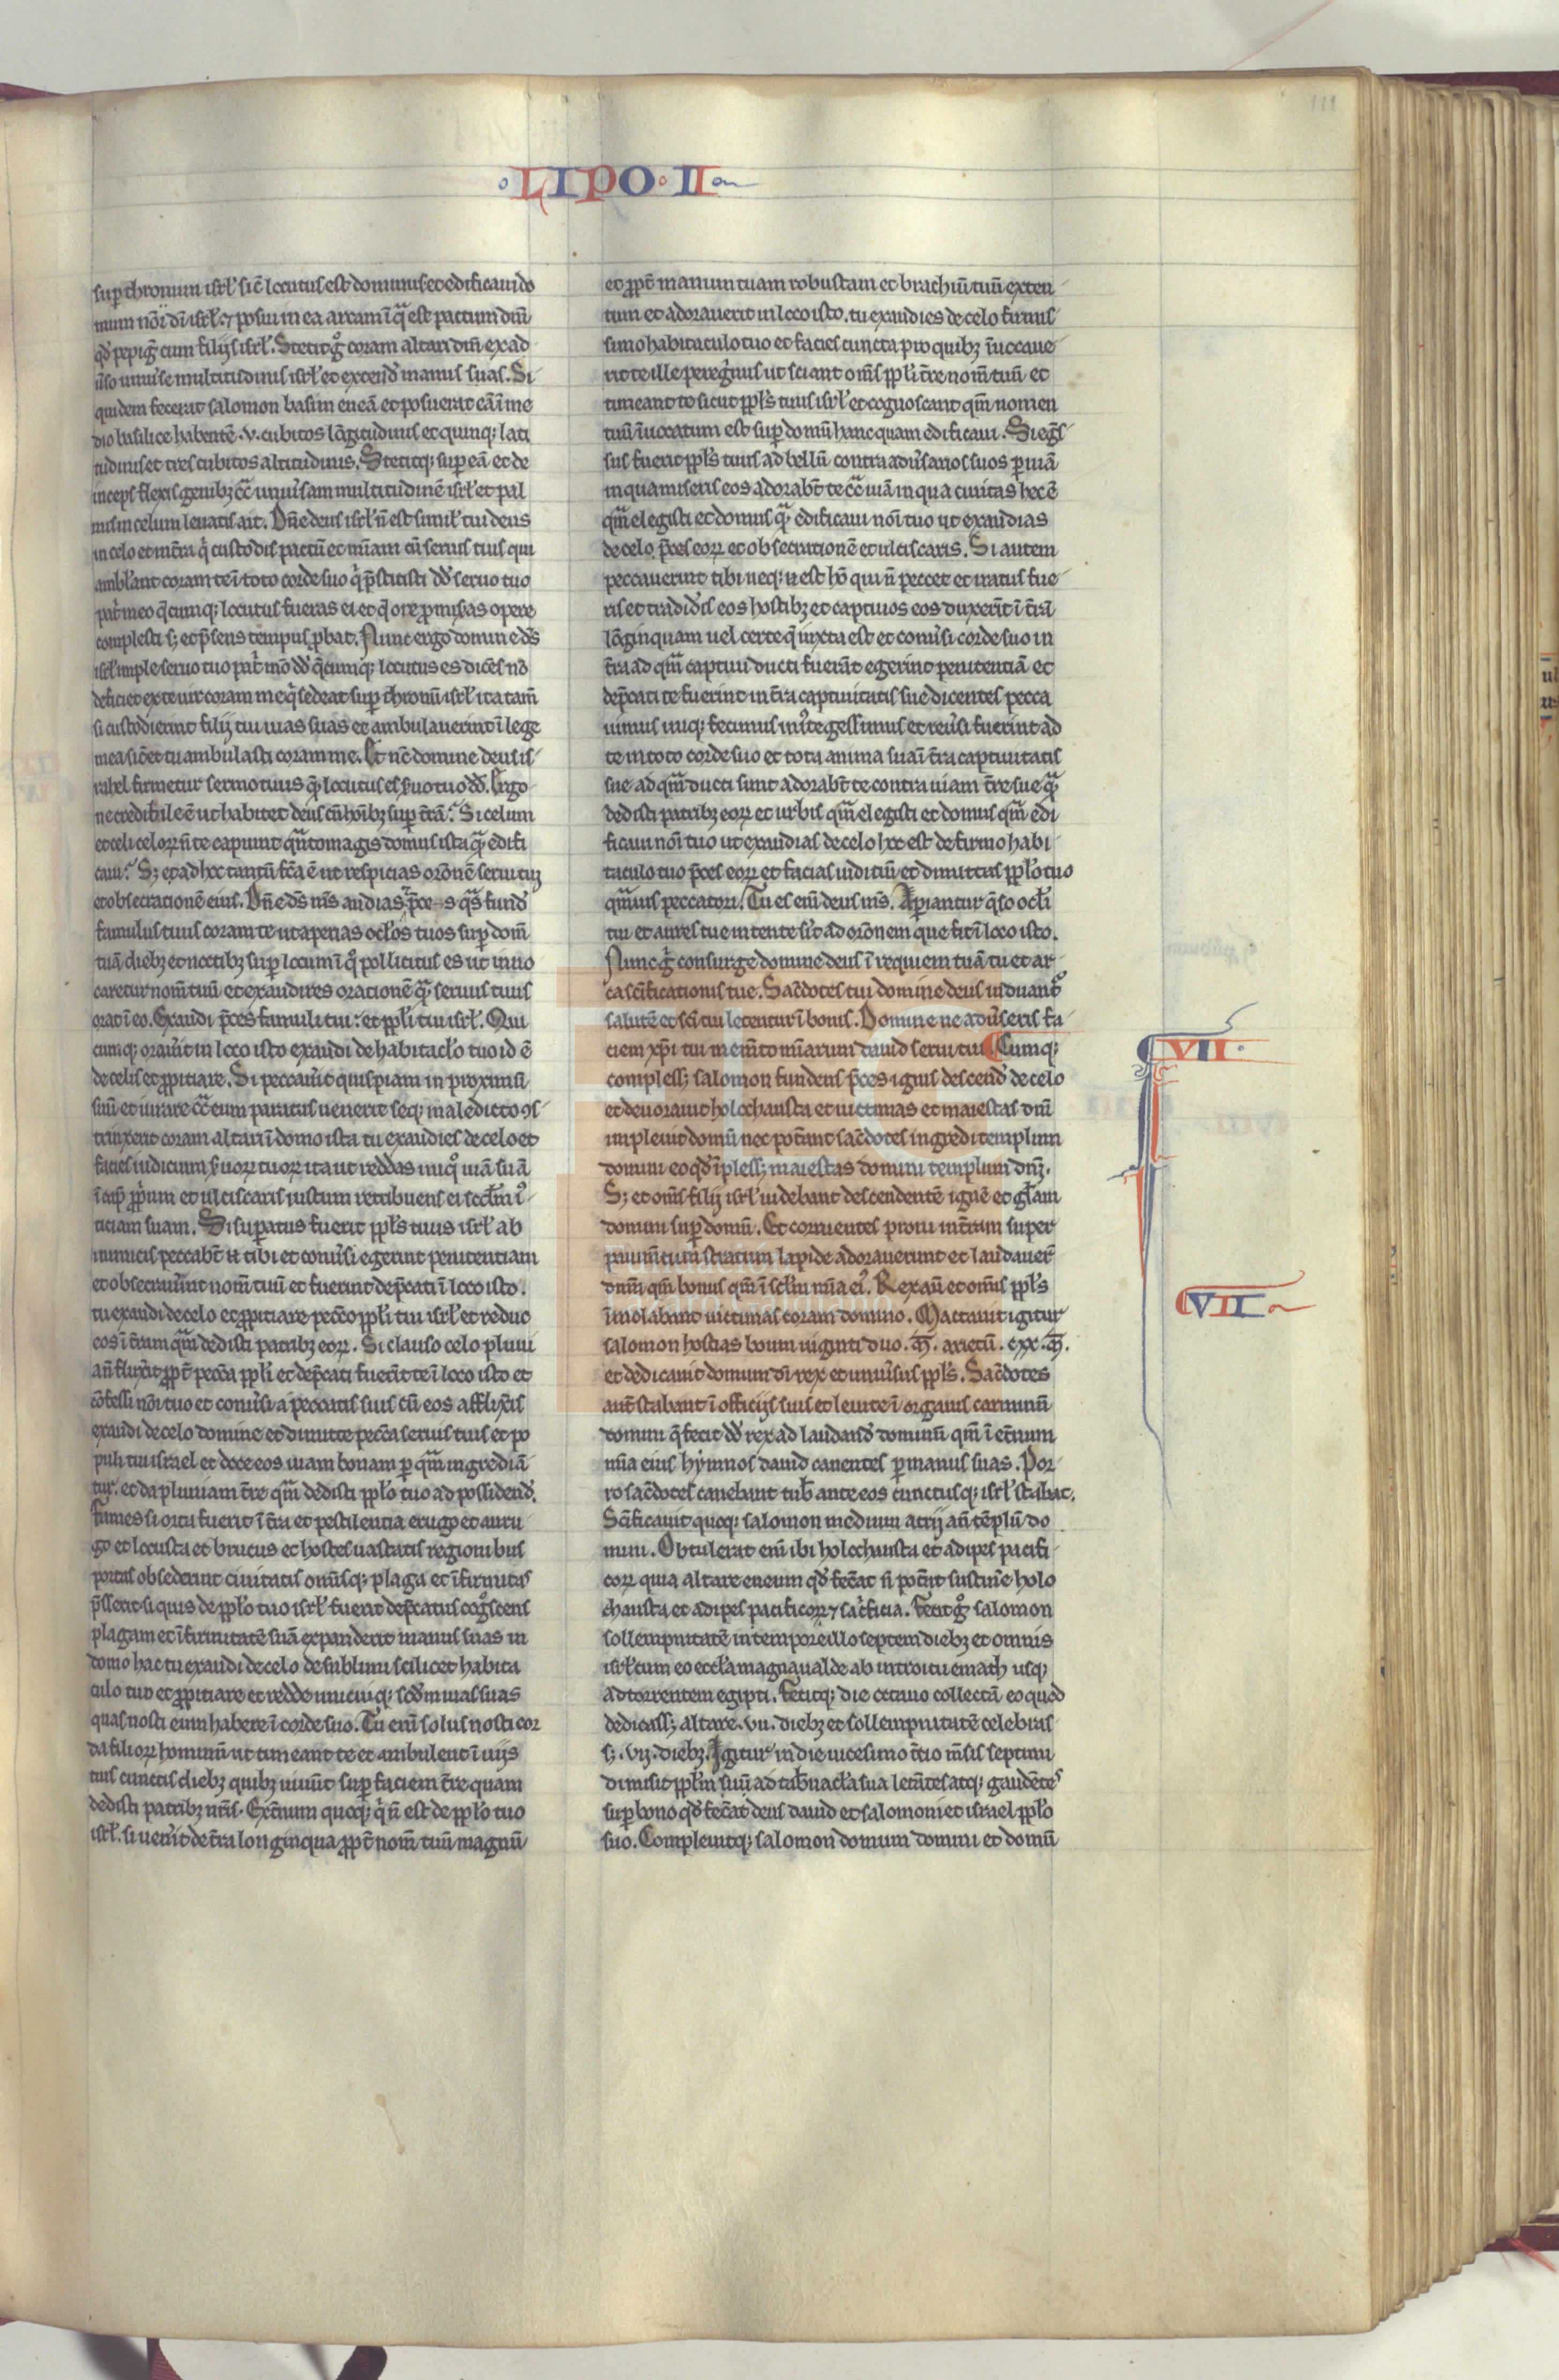 111
LIPO · II
sup thronum isrł sic̄ locutus est dominus et edificaui do
mum nōi dn̄i isrł. ⁊ posui in ea arcam ī qͣ est pactum dn̄i
qd̄ pepiḡ cum filijs isrł. Stetit gͦ coram altari dn̄i ex ad
uso uniuse multitudinis isrł et extend̄ manus suas. Si
quidem fecerat salomon basim eneā et posuerat eā ī me
dio basilice habentē .v. cubitos lōgitudinis et quinq; lati
tudinis et tres cubitos altitudinis. Stetitq; sup eā et de
inceps flexis genibꝫ cͣ uniusam multitudinē isrł et pal
mis in celum leuatis ait. Dn̄e deus isrł n̄ est simił tui deus
in celo et in t̄ra q̇ custodis pactū et mīam cū seruis tuis qui
ambłant coram te ī toto corde suo q̇ p̄stitisti dd̄ seruo tuo
pat̄ meo q̄cumq; locutus fueras ei et q̄ ore ꝓmisas opere
complesti sꝫ et p̄sens tempus ꝓbat. Nunc ergo domine dē̄s
isrł imple seruo tuo pat̄ mō dd̄ q̄cumq; locutus es dicēs nō
deficiet ex te uir coram me q̇ sedeat sup thronū isrł ita tam̄
si custodierint filij tui uias suas et ambulauerint ī lege
mea sic̄ et tu ambulasti coram me. Et nc̄ domine deus is
rahel firmetur sermo tuus qͣ locutus es s̄uo tuo dd̄. Ergo
ne credibile ē ut habitet deus cū hoībꝫ sup t̄rā. Si celum
et celi celoꝝ n̄ te capiunt qͣnto magis domus ista qͣ edifi
caui. Sꝫ et ad hoc tantū fc̄a ē ut respicias orōnē serui tui
et obsecrationē eius. Dn̄e dē̄s m̄s audias p̄ces qͣs fund̄
famulus tuus coram te ut aperias ocłos tuos sup dom̄
tuā diebꝫ et noctibꝫ sup locum ī qͦ pollicitus es ut inuo
caretur nom̄ tuū et exaudires orationē qͣ seruus tuus
orat ī eo. Exaudi p̄ces famuli tui et ppłi tui isrł. Qui
cumq; orauit in loco isto exaudi de habitacło tuo id ē
de celis et ꝓpitiare. Si peccauit quispiam in proximū
suū et iurare cͣ eum paratus uenerit seq; maledicto ꝯs
trinxerit coram altari ī domo ista tu exaudies de celo et
facies iudicium s̄uoꝝ tuoꝝ ita ut reddas iniqͦ uiā suā
ī cap̄ ꝓprium et ulciscaris iustum retribuens ei scd̄m iu
ticiam suam. Si supatus fuerit ppłs tuus isrł ab
inimicis peccabt̄ n̄ tibi et conuersi egerint penitentiam
et obsecrauint nom̄ tuū et fuerint dep̄cati ī loco isto.
tu exaudi de celo et ꝓpitiare pecc̄o ppłi tui isrł et reduc
eos ī t̄ram qͣm dedisti patribꝫ eoꝝ. Si clauso celo pluui
an̄ fluxit ꝓpt̄ pecc̄a ppłi et dep̄cati fuerīt te ī loco isto et
cōfessi nōi tuo et conuersi a peccatis suis cū eos afflixeris
exaudi de celo domine et dimitte pecc̄a seruis tuis et po
puli tui israel et doce eos uiam bonam p qͣm ingrediā
tur. et da pluuiam t̄re qͣm dedisti ppło tuo ad possidend̄.
Fames si orta fuerit ī t̄ra et pestilentia erugo et auru
go et locusta et brucus et hostes uastatis regionibus
portas obsederint ciuitatis omisq; plaga et īfirmitas
p̄sserit si quis de ppło tuo isrł fuerit dep̄catus cogͦscens
plagam et īfirmitatē suā expanderit manus suas in
domo hac tu exaudi de celo de sublimi scilicet habita
culo tuo et ꝓpitiare et redde unicuiq; scd̄m uias suas
quas nosti eum habere ī corde suo. Tu enī solus nosti cor
da filioꝝ hominū ut timeant te et ambulent ī uijs
tuis cunctis diebꝫ quibꝫ uiuūt sup faciem t̄re quam
dedisti patribꝫ nr̄is. Ext̄num quoq; q̇ n̄ est de ppło tuo
isrł. si uenit de t̄ra longinqua ꝓpt̄ nom̄ tuū magnū
et ꝓpt̄ manum tuam robustam et brachiū tuū exten
tum et adorauerit in loco isto. tu exaudies de celo firmis
simo habitaculo tuo et facies cuncta pro quibꝫ īuocaue
rit te ille peregrinus ut sciant om̄s ppłi t̄re nom̄ tuū et
timeant te sicut ppłs tuus isrł et cognoscant qm̄ nomen
tuū īuocatum est sup domū hanc quam edificaui. Si egs̄
sus fuerit ppłs tuus ad bellū contra aduersarios suos p uiā
in qua miseris eos adorabt̄ te cͣ uiā in qua ciuitas hec ē
qͣm elegisti et domus qͣ edificaui nōi tuo ut exaudias
de celo p̄ces eoꝝ et obsecrationē et ulciscaris. Si autem
peccauerint tibi neq; n̄ est hō qui n̄ peccet et iratus fue
ris et tradid̄is eos hostibꝫ et captiuos eos duxerīt ī t̄rā
lōginquam uel certe q̄ iuxta est et conuersi corde suo in
t̄ra ad qͣm captiui ducti fuerāt egerint penitentiā et
dep̄cati te fuerint in t̄ra captiuitatis sue dicentes pecca
uimus iniq; fecimus iniuste gessimus et reuersi fuerint ad
te in toto corde suo et tota anima sua ī t̄ra captiuitatis
sue ad qͣm ducti sunt adorabt̄ te contra uiam t̄re sue qͣ
dedisti patribꝫ eoꝝ et urbis qͣm elegisti et domus qͣm edi
ficaui nōi tuo ut exaudias de celo hoc est de firmo habi
taculo tuo p̄ces eoꝝ et facias iuditiū et dimittas ppło tuo
qͣmuis peccatori. Tu es enī deus m̄s. Apiantur q̄so ocłi
tui et aures tue intente sīt ad orōnem que fit ī loco isto.
Nunc gͥ consurge domine deus ī requiem tuā tu et ar
ca sc̄ificationis tue. Sac̄dotes tui domine deus induantͬ
salutē et sc̄i tui letentur ī bonis. Domine ne aduseris fa
ciem xp̄i tui mem̄to mīarum dauid serui tui Cumq;
complessꝫ salomon fundens p̄ces ignis descend̄ de celo
et deuorauit holochausta et uictimas et maiestas dn̄i
impleuit domū nec potant sac̄dotes ingredi templum
domini eo qd̄ īplessꝫ maiestas domini templum dn̄i.
Sꝫ et om̄s filij isrł uidebant descendentē ignē et głam
domini sup domū. Et corruentes proni in t̄ram super
pauimentum stratum lapide adorauerunt et laudauer̄
dn̄m qm̄ bonus qm̄ ī scłm mīa eiꝰ. Rex aut̄ et om̄is ppłs
īmolabant uictimas coram domino. Mactauit igitur
salomon hostias boum uiginti duo .m̄. arietū .cxx.m̄.
et dedicauit domum dī rex et uniuersus ppłs. Sac̄dotes
aut̄ stabant ī officijs suis et leuite ī organis carminū
domini q̄ fecit dd̄ rex ad laudand̄ dominū qm̄ ī et̄num
mīa eius hymnos dauid canentes p manus suas. Por
ro sac̄dotes canebant tub̄ ante eos cunctusq; isrł stabat.
Sc̄ificauit quoq; salomon medium atrij an̄ tēplū do
mini. Obtulerat enī ibi holochausta et adipes pacifi
coꝝ quia altare eneum qd̄ fec̄at n̄ potat sustine holo
chausta et adipes pacificoꝝ ⁊ sac̄ficia. Fecit gͦ salomon
sollempnitatē in tempore illo septem diebꝫ et omnis
isrł cum eo eccła magna ualde ab introitu emath usq;
ad torrentem egipti. Fecitq; die octauo collectā eo quod
dedicassꝫ altare .vii. diebꝫ et sollempnitatē celebras
sꝫ .vij. diebꝫ. Igitur in die uicesimo t̄tio m̄sis septimi
dimisit ppłm suū ad tab̄nacła sua letātes atq; gaudētes
sup bono qd̄ fec̄at deus dauid et salomoni et israel ppło
suo. Compleuitq; salomon domum domini et domū
VII
VII